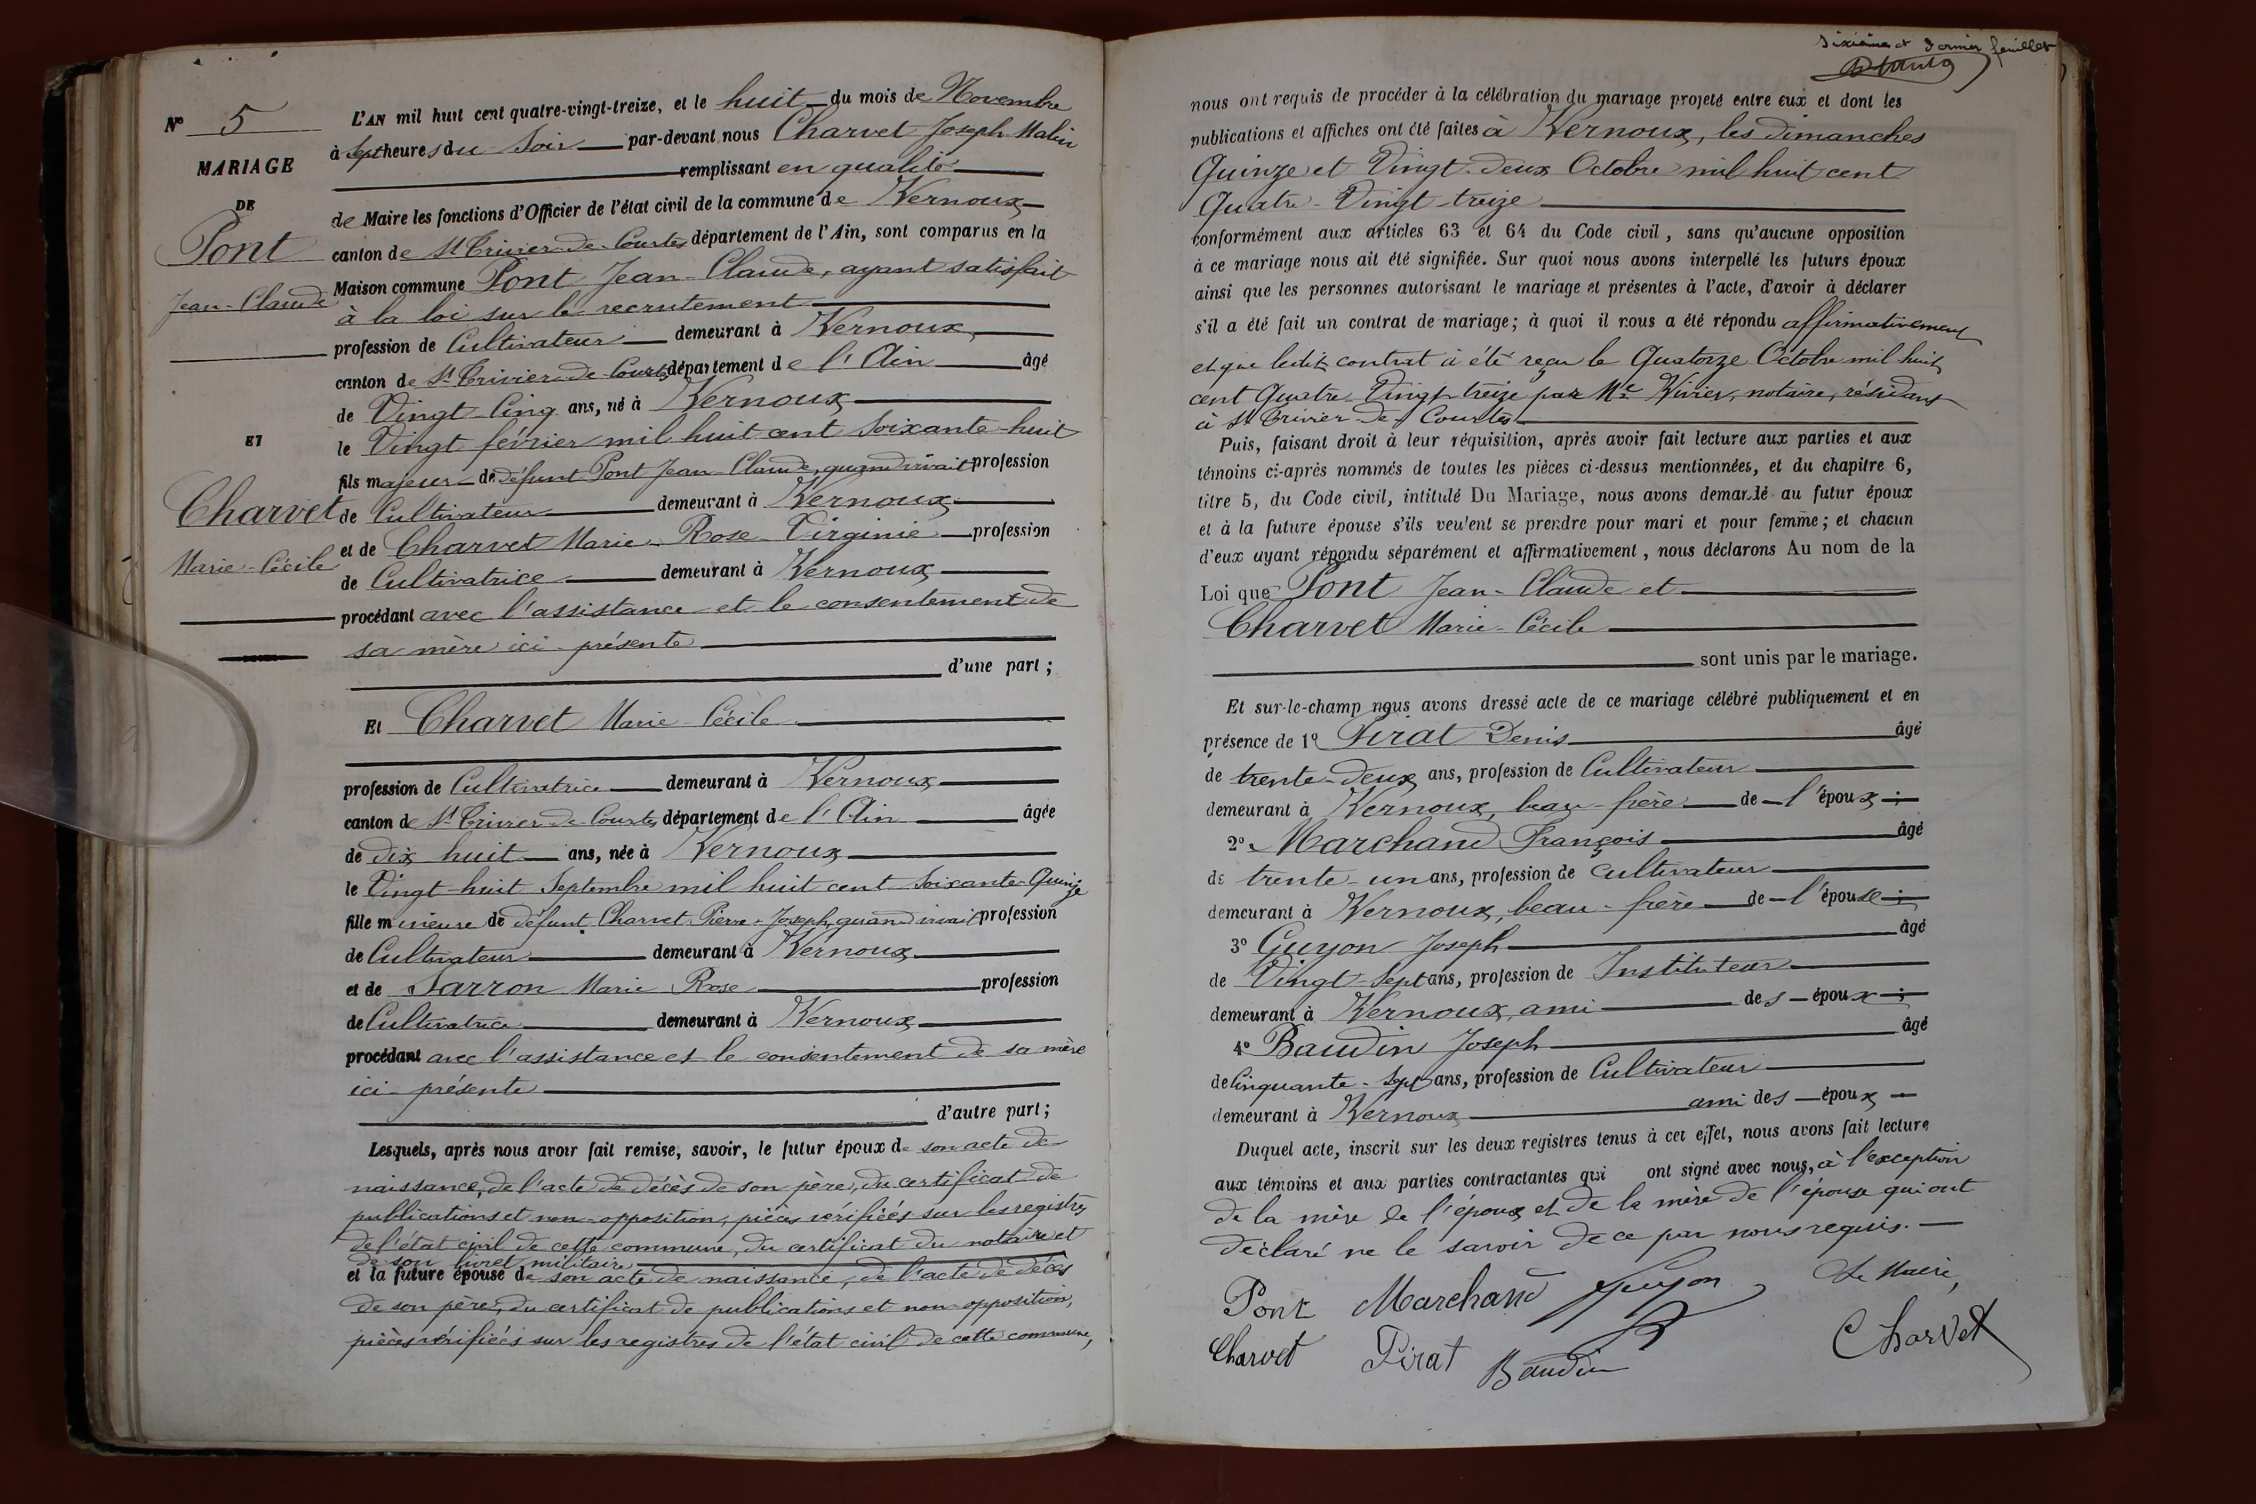 N° 5
MARIAGE
DE
Pont
Jean-Claude
ET
Charvet
Marie-Cécile
L'AN mil huit cent quatre-vingt-treize, et le huit du mois de Novembre
à Sept heures du Soir par-devant nous Charvet Joseph
remplissant en qualité
de Maire les fonctions d'Officier de l'état civil de la commune de Vernoux
canton de St Trivier-de-Courtes département de l'Ain, sont comparus en la
Maison commune Pont Jean-Claude, ayant satisfait
à la loi sur le recrutement
profession de Cultivateur demeurant à Vernoux
canton de St Trivier-de-Courtes département de l'Ain âgé
de Vingt-Cinq ans, né à Vernoux
le Vingt février mil huit cent Soixante-huit
fils majeur de défunt Pont Jean-Claude, quand vivait profession
de Cultivateur demeurant à Vernoux
et de Charvet Marie-Rose-Virginie profession
de Cultivatrice demeurant à Vernoux
procédant avec l'assistance et le consentement de
sa mère ici présente
d'une part ;
Et Charvet Marie-Cécile
profession de Cultivatrice demeurant à Vernoux
canton de St Trivier-de-Courtes département de l'Ain âgée
de dix huit ans, née à Vernoux
le Vingt-huit Septembre mil huit cent Soixante-Quinze
fille mineure de défunt Charvet Pierre-Joseph, quand vivait profession
de Cultivateur demeurant à Vernoux
et de Sarron Marie Rose profession
de Cultivatrice demeurant à Vernoux
procédant avec l'assistance et le consentement de sa mère
ici présente
d'autre part ;
Lesquels, après nous avoir fait remise, savoir, le futur époux de son acte de
naissance, de l'acte de décès de son père, du certificat de
publications et non-opposition, pièces vérifiées sur les registres
de l'état civil de cette commune, du certificat du notaire et
de son livret militaire
et la future épouse de son acte de naissance, de l'acte de décès
de son père, du certificat de publications et non-opposition,
pièces vérifiées sur les registres de l'état civil de cette commune,
Sixième et dernier feuillet
nous ont requis de procéder à la célébration du mariage projeté entre eux et dont les
publications et affiches ont été faites à Vernoux, les dimanches
Quinze et Vingt-deux Octobre mil huit cent
Quatre-Vingt-treize
conformément aux articles 63 et 64 du Code civil, sans qu'aucune opposition
à ce mariage nous ait été signifiée. Sur quoi nous avons interpellé les futurs époux
ainsi que les personnes autorisant le mariage et présentes à l'acte, d'avoir à déclarer
s'il a été fait un contrat de mariage ; à quoi il nous a été répondu affirmativement
et que ledit contrat a été reçu le Quatorze Octobre mil huit
cent Quatre-Vingt-treize par Me Vivier, notaire, résidant
à St Trivier-de-Courtes
Puis, faisant droit à leur réquisition, après avoir fait lecture aux parties et aux
témoins ci-après nommés de toutes les pièces ci-dessus mentionnées, et du chapitre 6,
titre 5, du Code civil, intitulé Du Mariage, nous avons demandé au futur époux
et à la future épouse s'ils veulent se prendre pour mari et pour femme ; et chacun
d'eux ayant répondu séparément et affirmativement, nous déclarons Au nom de la
Loi que Pont Jean-Claude et
Charvet Marie-Cécile
sont unis par le mariage.
Et sur-le-champ nous avons dressé acte de ce mariage célébré publiquement et en
présence de 1° Pirat Denis âgé
de trente-deux ans, profession de Cultivateur
demeurant à Vernoux, beau-frère de l'époux ;
2° Marchand François âgé
de trente-un ans, profession de Cultivateur
demeurant à Vernoux, beau-frère de l'épouse ;
3° Guyon Joseph âgé
de Vingt-Sept ans, profession de Instituteur
demeurant à Vernoux, ami des époux ;
4° Baudin Joseph âgé
de Cinquante-Sept ans, profession de Cultivateur
demeurant à Vernoux ami des époux
Duquel acte, inscrit sur les deux registres tenus à cet effet, nous avons fait lecture
aux témoins et aux parties contractantes qui ont signé avec nous, à l'exception
de la mère de l'époux et de la mère de l'épouse qui ont
déclaré ne le savoir de ce par nous requis.
Pont Marchand Guyon Le Maire,
Charvet Pirat Baudin Charvet